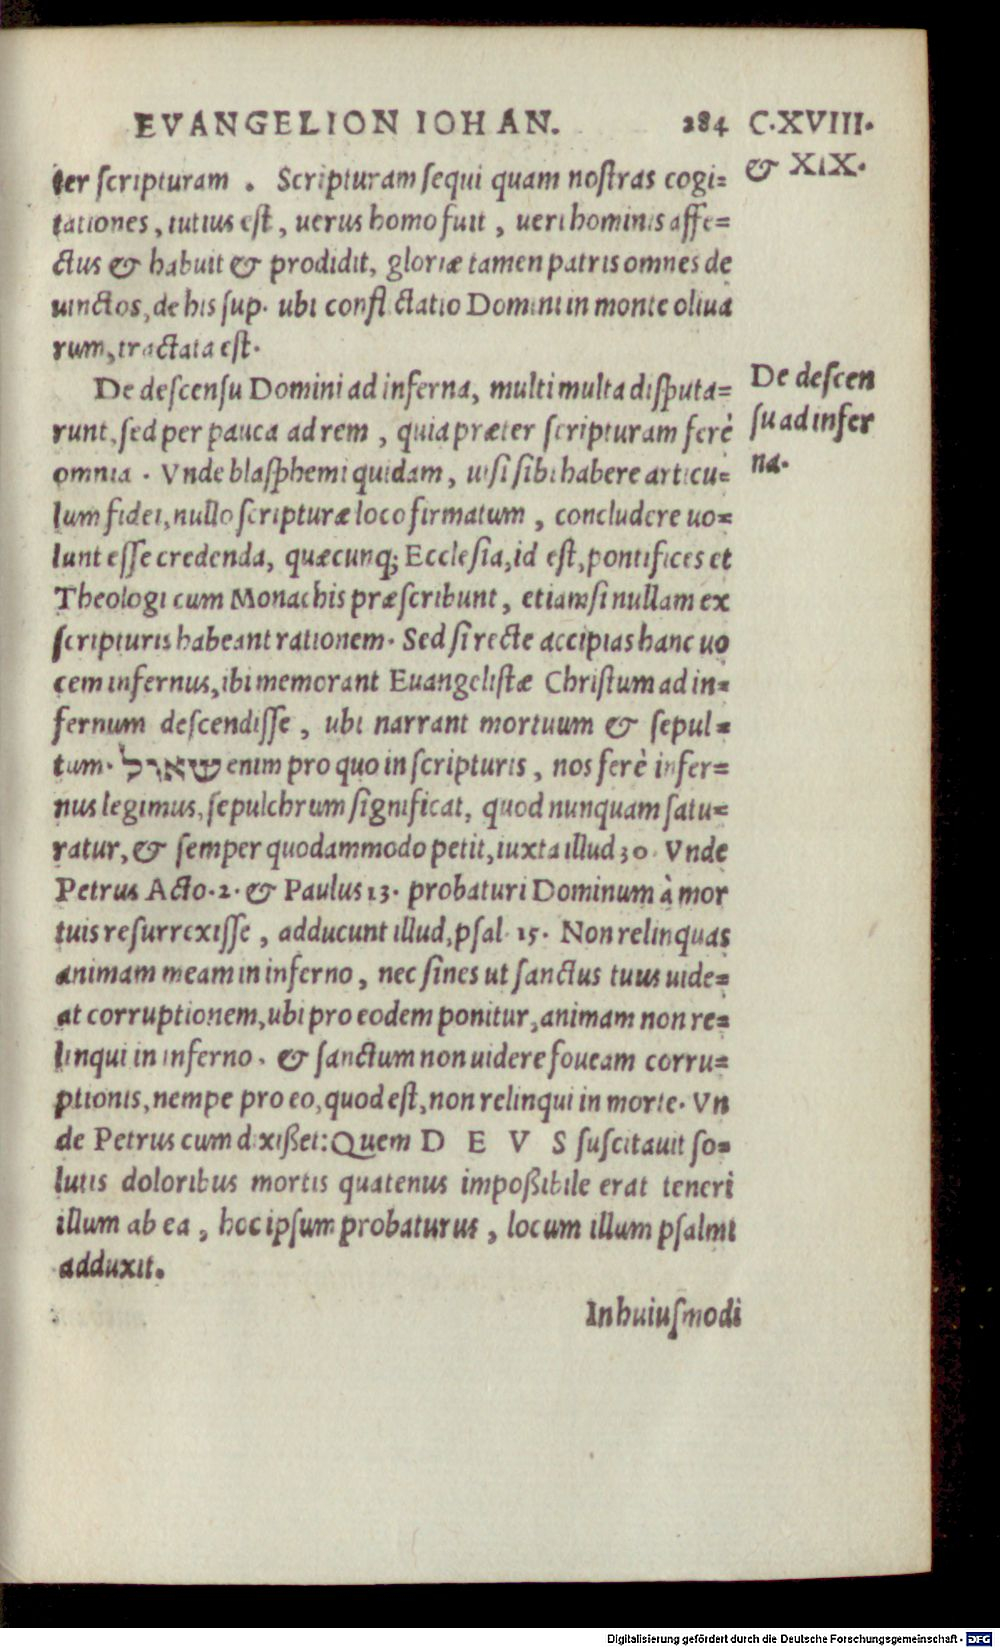 EVANGELION IOHAN. 284 C.XVIII.
& XIX.
ter ſcripturam . Scripturam ſequi quam noſtras cogi=
tationes, tutius eſt, uerus homo fuit, ueri hominis affe=
ctus & habuit & prodidit, gloriæ tamen patris omnes de
uinctos, de his ſup. ubi confl ctatio Domini in monte oliua
rum, tractata eſt.
De deſcenſu Domini ad inferna, multi multa diſputa=
runt, ſed per pauca ad rem, quia præter ſcripturam ferè
omnia. Vnde blaſphemi quidam, uiſi ſibi habere articu=
lum fidei, nullo ſcripturæ loco firmatum, concludere uo=
lunt eſſe credenda, quæcunq; Eccleſia, id eſt, pontifices et
Theologi cum Monachis præſcribunt, etiamſi nullam ex
ſcripturis habeant rationem. Sed ſi recte accipias hanc uo
cem infernus, ibi memorant Euangeliſtæ Chriſtum ad in=
fernum deſcendiſſe, ubi narrant mortuum & ſepul=
tum. שאול enim pro quo in ſcripturis, nos ferè infer=
nus legimus, ſepulchrum ſignificat, quod nunquam ſatu=
ratur, & ſemper quodammodo petit, iuxta illud 30. Vnde
Petrus Acto. 2. & Paulus 13. probaturi Dominum à mor
tuis reſurrexiſſe, adducunt illud, pſal. 15. Non relinquas
animam meam in inferno, nec ſines ut ſanctus tuus uide=
at corruptionem, ubi pro eodem ponitur, animam non re=
linqui in inferno. & ſanctum non uidere foueam corru=
ptionis, nempe pro eo, quod eſt, non relinqui in morte. Vn
de Petrus cum dixißet: Quem D E V S ſuſcitauit ſo=
lutis doloribus mortis quatenus impoßibile erat teneri
illum ab ea, hoc ipſum probaturus, locum illum pſalmi
adduxit.
De deſcen
ſu ad infer
na.
In huiuſmodi
Digitalisierung gefördert durch die Deutsche Forschungsgemeinschaft - DFG